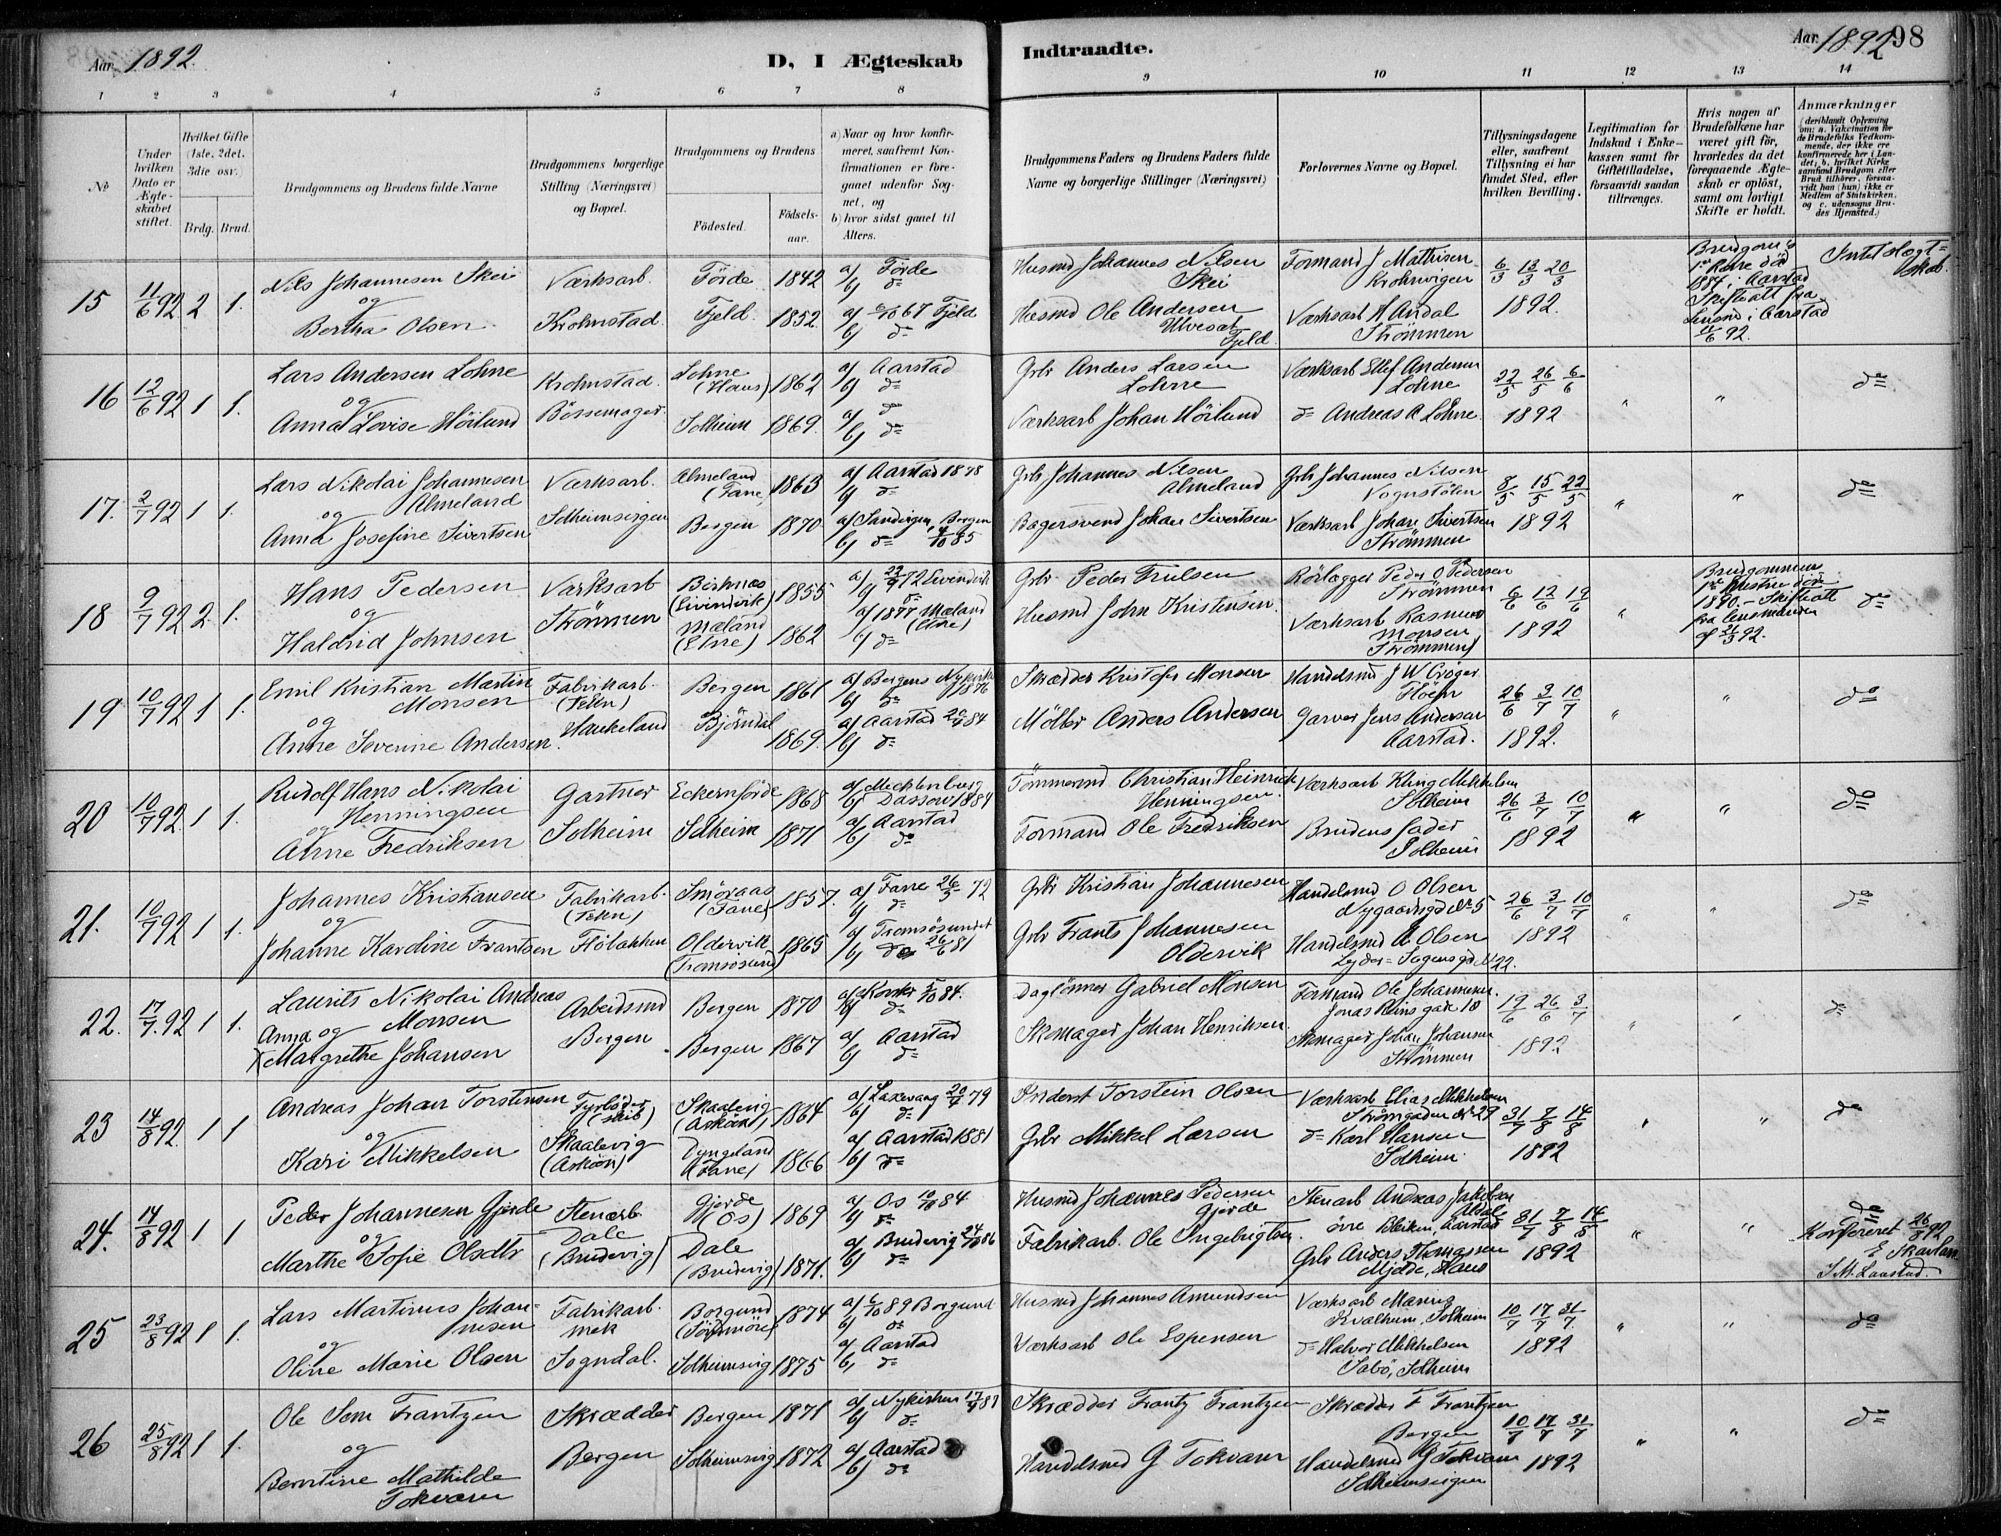 Aar 1892.
D, I Ægteskab
Indtraadte.
Aar 1892
98
1 2 3 4 5 6 7 8 9 10 11 12 13 14
№
Under hvilken Dato er Ægteskabet stiftet.
Hvilket Gifte (1ste, 2det, 3die osv.)
Brdg. Brud.
Brudgommens og Brudens fulde Navne
Brudgommens borgerlige Stilling (Næringsvei) og Bopæl.
Brudgommens og Brudens
Fødested.
Fødselsaar.
a) Naar og hvor konfirmeret, saafremt Konfirmationen er foregaaet udenfor Sognet, og
b) hvor sidst gaaet til Alters.
Brudgommens Faders og Brudens Faders fulde Navne og borgerlige Stillinger (Næringsvei)
Forlovernes Navne og Bopæl.
Tillysningsdagene eller, saafremt Tillysning ei har fundet Sted, efter hvilken Bevilling.
Legitimation for Indskud i Enkekassen samt for Giftetilladelse, forsaavidt saadan tiltrænges.
Hvis nogen af Brudefolkene har været gift før, hvorledes da det foregaaende Ægteskab er opløst, samt om lovligt Skifte er holdt.
Anmærkninger (deriblandt Oplysning om: a. Vakcination for de Brudefolks Vedkommende, der ikke ere konfirmerede her i Landet; b. hvilket Kirkesamfund Brudgom eller Brud tilhører, forsaavidt han (hun) ikke er Medlem af Statskirken, og c. udensogns Brudes Hjemsted.)
15 11/6 92 2 1. Nils Johannesen Skei og Bertha Olsen
Værksarb. Krohnstad.
Førde 1842 a) Førde b) do
Fjeld. 1852. 67 Fjeld b) do
Husmd Johannes Nilsen Skei
Husmd Ole Andersen Fjeld.
Formand J Mathisen Krohnvigen
Værksarb Strømmen
6/3 13/3 20/3 1892.
Brudgoms 1e Kone død 1884 i Aarstad Skifteatt fra Lensmd i Aarstad 11/6 92.
Intet Slægtskab.
16 12/6 92 1 1. Lars Andersen Lohne og Anna Lovise Höilund
Krohnstad. Bössemager.
Lohne (Haus) 1862 a) Aarstad b) do
Solheim 1869. a) do b) do
Grbr Anders Larsen Lohne
Værksarb Johan Höilund
Værksarb Ellef Andersen Lohne
do Andreas A Lohne
22/5 26/5 6/6 1892
" " do
17. 2/7 92 1 1. Lars Nikolai Johannesen Almeland og Anna Josefine Sivertsen
Værksarb. Solheimsvigen
Almeland (Fane) 1863 a) Aarstad 1878 b) do
Bergen 1870 a) Sandvigen, Bergen b) do 4/10 85
Grbr Johannes Nilsen Almeland
Bagersvend Johan Sivertsen
Grbr Johannes Nilsen Vognstølen
Værksarb Johan Sivertsen Strømmen
8/5 15/5 22/5 1892
" " do
18 9/7 92 2. 1. Hans Pedersen og Haldrid Johnsen
Værksarb Strømmen
Birknæs (Eivindvik) 1855 72 Eivindvik do
Mæland (Etne) 1862 a) 1877 Mæland (Etne) b) do
Grbr Peder Trulsen
Husmd John Kristensen.
Rørlægger Peder O Pedersen Strømmen
Værksarb Rasmus Monsen Strømmen
6/6 12/6 19/6 1892
" Brudgommens 1e Hustru døde 1890. - Skifteatt fra Lensmanden af 21/3 92.
do
19 10/7 92 1 1. Emil Kristian Martin Monsen og Anne Severine Andersen
Fabrikarb. (Tekn) Haukeland
Bergen 1861 a) Bergens Nykirke 1876 b) do
Bjørndal 1869. a) Aarstad 20/4 84 b) do
Skrædder Kristofer Monsen
Møller Anders Andersen
Handelsmd J W Crøger
Garver Jens Andersen Aarstad.
26/6 3/7 10/7 1892.
" " do
20 10/7 92 1 1. Rudolf Hans Nikolai Henningsen og Anne Fredriksen
Gartner Solheim
Eckernförde 1868 a) Mecklenburg b) Dassow 1884
Solheim 1871 a) Aarstad b) do
Tømmermd Christian Heinrich Henningsen.
Formand Ole Fredriksen
Værksarb Kling Mikkelsen Solheim
Brudens fader Solheim
26/6 3/7 10/7 1892
" " do
21. 10/7 92 1 1. Johannes Kristiansen og Johanne Karoline Frantsen
Fabrikarb. (Tekn) Fløbakken
Smöraas (Fane) 1857. a) Fane 26/5 72 b) do
Oldervik (Tromsøsund) 1865 a) Tromsøsundet b) do 26/6 81
Grbr Kristian Johannesen
Grbr Frants Johannesen Oldervik
Handelsmd O Olsen Nygaardsgd No 5
Handelsmd A Olsen Lyder Sagensgd No 22.
26/6 3/7 10/7 1892
" " do
22. 17/7 92 1 1. Laurits Nikolai Andreas Monsen og Anna Margrethe Johansen
Arbeidsmd Bergen
Bergen 1870 a) Korsk 5/10 84. b) do
Bergen 1867 a) Aarstad b) do
Daglönner Gabriel Monsen
Skomager Johan Henriksen.
Formand Ole Johannesen. Jonas Reins gade 18
Skomager Johan Johansen Strømmen
19/6 26/6 3/7 1892
" " do
23 14/8 92 1 1 Andreas Johan Torstensen og Kari Mikkelsen
Fyrbøder (skib) Skaalevig (Askøen)
Skaalevig (Askøen) 1864 a) Laxevaag 20/4 79 b) do
Dyngeland (Fane) 1866 a) Aarstad 1881 b) do
Inderst Torstein Olsen
Grbr Mikkel Larsen
Værksarb Elias Mikkelsen Strømgaden No 29
do Karl Hansen Solheim.
31/7 7/8 14/8 1892
" " do
24. 14/8 92 1 1 Peder Johannesen Gjerde og Marthe Sofie Olsdtr
Stenarb Dale (Bruvig)
Gjerde (Os) 1869 a) Os 10/10 84 b) do
Dale (Bruvig) 1871. a) Bruvig 24/10 86 b) do
Husmd Johannes Pedersen Gjerde
Fabrikarb. Ole Ingebrigtsen.
Stenarb Andreas Jakobsen øvre Bleiken, Aarstad
Grbr Anders Thomassen Mjelde, Haus
31/7 7/8 14/8 1892
" " do
Konfereret 26/8 92
25 23/8 92 1 1. Lars Martinus Johannesen og Oline Marie Olsen
Fabrikarb. mek Sogndal.
Borgund (Søndmøre) 1874 a) 6/10 89 Borgund b) do
Solheimsvig 1875 a) Aarstad b) do
Husmd Johannes Amundsen
Værksarb Ole Espensen
Værksarb Kvalheim, Solheim
do Halvor Mikkelsen Sabø, Solheim
10/7 17/7 31/7. 1892
" " do
26 25/8 92 1 1. Ole Sem Frantzen og Berntine Mathilde Tokvam
Skrædder Bergen
Bergen 1871 a) Nykirken 17/4 87 b) do
Solheimsvig 1872 a) Aarstad b) do
Skrædder Frantz Frantzen
Handelsmd G Tokvam
Skrædder F Frantzen Bergen
Handelsmd G Tokvam Solheimsvigen
10/7 17/7 31/7 1892
" " do